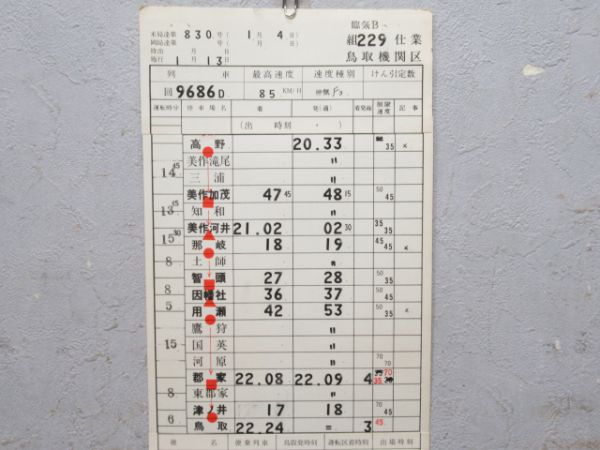 臨気B
米局達第 830 号 ( 1 月 4 日 )
岡局達第 号 ( 月 日 )
組229仕業
時出 月 日
施行 1 月 13 日
鳥取機関区
列 車 最高速度 速度種別 けん引定数
回9686D 85 KM/H 停気
運転時分 停車場名 着 発(通) 着発線 制限速度 記事
(出 時刻 ・ )
高野 20.33 35 ×
美作滝尾 〃
14 45 三浦 〃
美作加茂 47 45 48 15 50 45
13 45 知和 〃
美作河井 21.02 02 30 35 35
15 30 那岐 18 19 45 45 ×
土師 〃
8 智頭 27 28 50 35
8 因幡社 36 37 50 45
5 用瀬 42 53 35 ×
鷹狩 〃
15 国英 〃
河原 〃 70 70
郡家 22.08 22.09 4 35 70
8 東郡家 〃
津ノ井 17 18 70 45
6 鳥取 22.24 = 3 45
便乗列車 鳥取発時刻 運転区着時刻 出場時刻